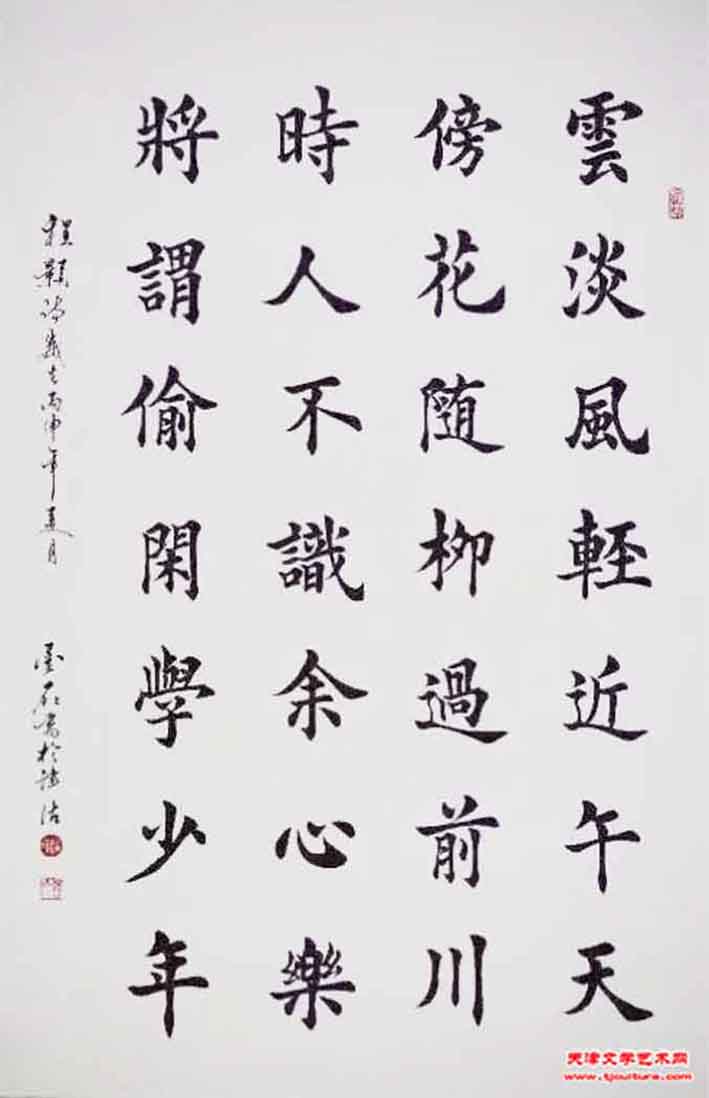 雲淡風輕近午天
傍花随柳過前川
時人不識余心樂
將謂偷閑學少年
程顥詩意之丙申年夏月
墨石書於津沽
天津文学艺术网
www.tjculture.com